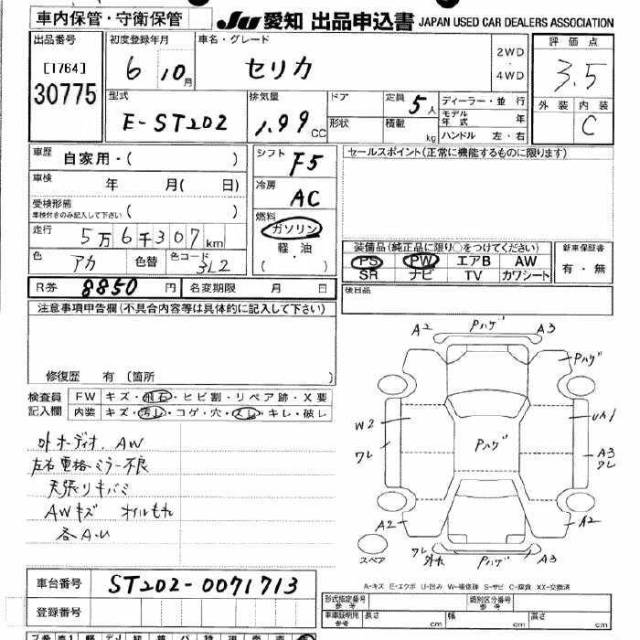 車内保管・守衛保管 JU愛知 出品申込書 JAPAN USED CAR DEALERS ASSOCIATION
出品番号 初度登録年月 車名・グレード 2WD・4WD 評価点
[1764] 6 10月 セリカ 3.5
30775 型式 排気量 ドア 定員 5人 ディーラー・並行 外装 内装
E-ST202 1.99CC 形状 積載 kg モデル年式 年 C
ハンドル 左・右
車歴 自家用・( ) シフト F5 セールスポイント(正常に機能するものに限ります)
車検 年 月( 日) 冷房 AC
受検形態 ( )
車検付きのみ記入して下さい
走行 5万6千307km 燃料 ガソリン 軽・油 ( )
色 アカ 色替 色コード 3L2
装備品(純正品に限り○をつけてください) 新車保証書
PS PW エアB AW 有・無
SR ナビ TV カワシート
R券 8850円 名変期限 月 日 後日品
注意事項申告欄(不具合内容等は具体的に記入して下さい)
修復歴 有 (箇所
検査員記入欄 FW キズ・飛石・ヒビ割・リペア跡・X要
内装 キズ・汚レ・コゲ・穴・スレ・キレ・破レ
外オーディオ、AW
左右電格ミラー不良
天張りキバミ
AWキズ オイルもれ
各A.U
A2 Pハゲ A3
Pハゲ
W2 Uハ1
ワレ Pハゲ A3
ワレ
A2 A2
スペア ワレ 外れ Pハゲ A3
A-キズ E-エクボ U-凹み W-補修跡 S-サビ C-腐食 XX-交換済
車台番号 ST202-0071713
登録番号
形式指定番号 参考 類別区分番号 参考
車庫証明用 参考 長さ cm 幅 cm 高さ cm